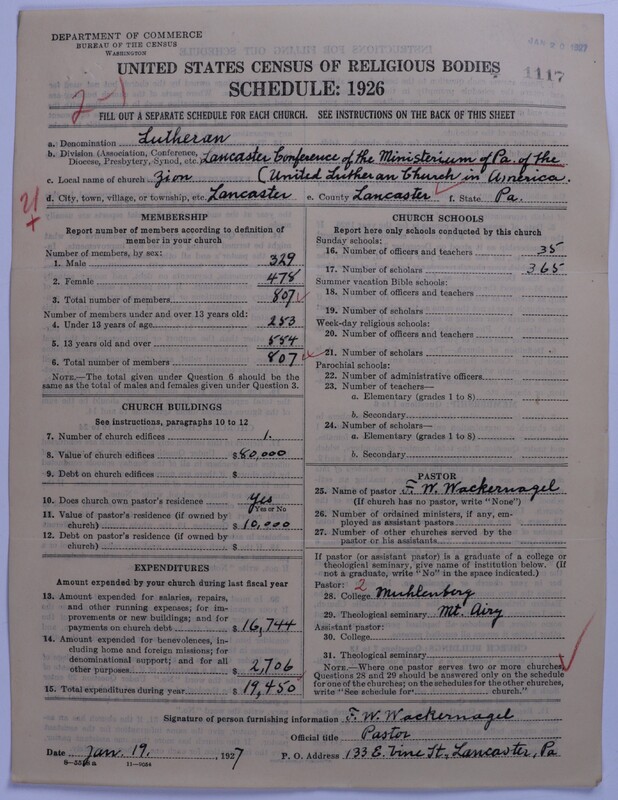 DEPARTMENT OF COMMERCE
BUREAU OF THE CENSUS
WASHINGTON
1927
1117
UNITED STATES CENSUS OF RELIGIOUS BODIES
SCHEDULE: 1926
2-1
FILL OUT A SEPARATE SCHEDULE FOR EACH CHURCH. SEE INSTRUCTIONS ON THE BACK OF THIS SHEET
a. Denomination Lutheran
b. Division (Association, Conference, Diocese, Presbytery, Synod, etc.) Lancaster Conference of the Ministerium of Pa. of the
c. Local name of church Zion (United Lutheran Church in America.
d. City, town, village, or township, etc. Lancaster e. County Lancaster f. State Pa.
MEMBERSHIP
Report number of members according to definition of
member in your church
Number of members, by sex:
1. Male 329
2. Female 478
3. Total number of members 807
Number of members under and over 13 years old:
4. Under 13 years of age 253
5. 13 years old and over 554
6. Total number of members 807
NOTE.—The total given under Question 6 should be
same as the total of males and females given under Question 3.
CHURCH BUILDINGS
See instructions, paragraphs 10 to 12
7. Number of church edifices 1.
8. Value of church edifices $80,000
9. Debt on church edifices $
10. Does church own pastor's residence Yes
Yes or No
11. Value of pastor's residence (if owned by
church) $10,000
12. Debt on pastor's residence (if owned by
church) $
EXPENDITURES
Amount expended by your church during last fiscal year
13. Amount expended for salaries, repairs,
and other running expenses; for im-
provements or new buildings; and for
payments on church debt $16,744
14. Amount expended for benevolences, in-
cluding home and foreign missions; for
denominational support; and for all
other purposes $2,706
15. Total expenditures during year $19,450
CHURCH SCHOOLS
Report here only schools conducted by this church
Sunday schools:
16. Number of officers and teachers 35
17. Number of scholars 365
Summer vacation Bible schools:
18. Number of officers and teachers
19. Number of scholars
Week-day religious schools:
20. Number of officers and teachers
21. Number of scholars
Parochial schools:
22. Number of administrative officers
23. Number of teachers—
a. Elementary (grades 1 to 8)
b. Secondary
24. Number of scholars—
a. Elementary (grades 1 to 8)
b. Secondary
PASTOR
25. Name of pastor F. W. Wackernagel
(If church has no pastor, write "None")
26. Number of ordained ministers, if any, em-
ployed as assistant pastors
27. Number of other churches served by the
pastor or his assistants
If pastor (or assistant pastor) is a graduate of a college or
theological seminary, give name of institution below. (If
not a graduate, write "No" in the space indicated.)
Pastor: 2
28. College Muhlenberg
29. Theological seminary Mt. Airy
Assistant pastor:
30. College
31. Theological seminary
NOTE.—Where one pastor serves two or more churches,
Questions 28 and 29 should be answered only on the schedule
for one of the churches; on the schedules for the other churches,
write "See schedule for church."
Signature of person furnishing information F. W. Wackernagel
Official title Pastor
Date Jan. 19, 1927 P. O. Address 133 E. Vine St., Lancaster, Pa
11-9034